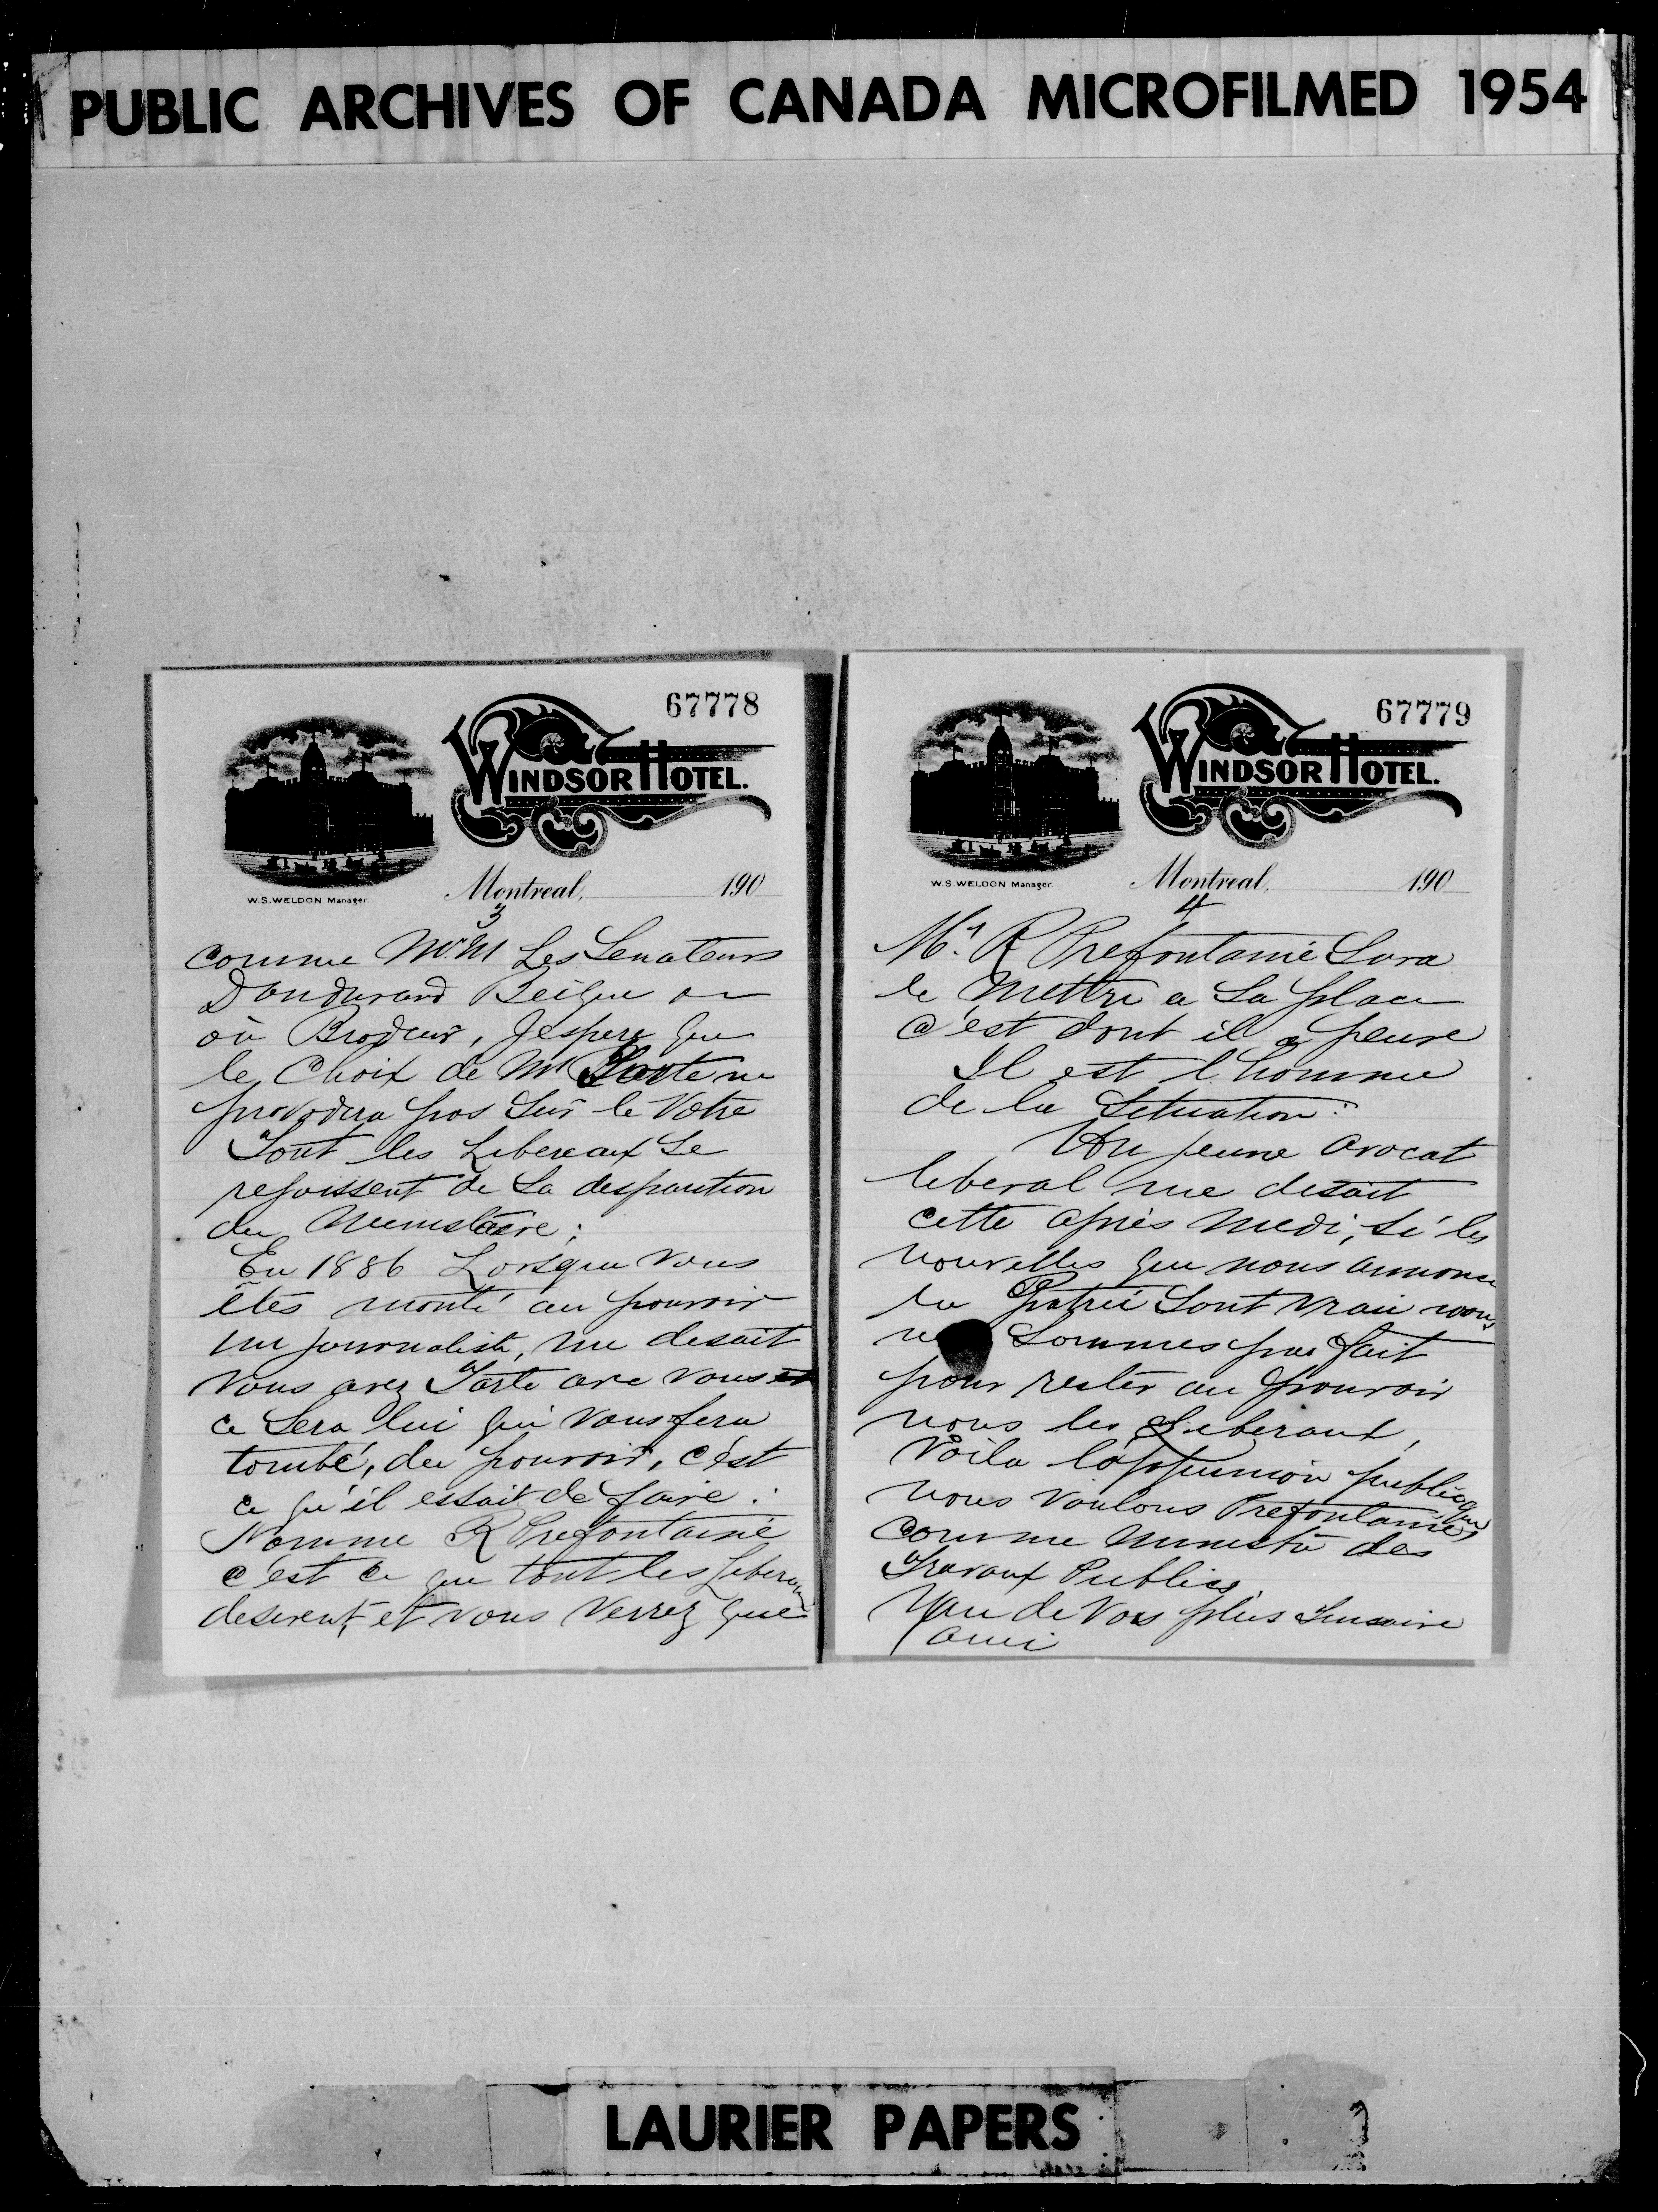 PUBLIC ARCHIVES OF CANADA MICROFILMED 1954
67778
WINDSOR HOTEL.
W.S.WELDON Manager
Montreal, 190
3
comme M.M Les Senateurs
Dandurand Beique ou
où Brodeur, Jespere que
le Choix de Mr Tarte ne
pas Sur le Votre
Tout les Libereaux Se
rejoissent de Sa desparition
du Ministaire;
En 1886 Lorsque vous
êtes monté au pouvoir
un journaliste, me desait
vous avez Tarte avec vous et
ce Sera lui qui vous fera
tombé, du pouvoir, c'est
ce qu'il essait de faire:
Nomme R Prefontaine
c'est ce que tout les Liberaux
desirent, et vous verrez que
67779
WINDSOR HOTEL.
W.S.WELDON Manager
Montreal, 190
4
Mr R Prefontaine Sera
le Mettre a Sa place
c'est dont il a peure
Il est l'homme
de la Situation:
Un jeune avocat
liberal me desait
cette après medi, si les
nouvelles que nous annonce
la Patrie Sont vraie nous
ne Sommes pas fait
pour rester au pouvoir
nous les Liberaux,
Voila l'oppinion publique
nous voulons Prefontaine
comme Ministre des
Travaux Publics,
Un de Vos plus Sinsaire
ami
LAURIER PAPERS